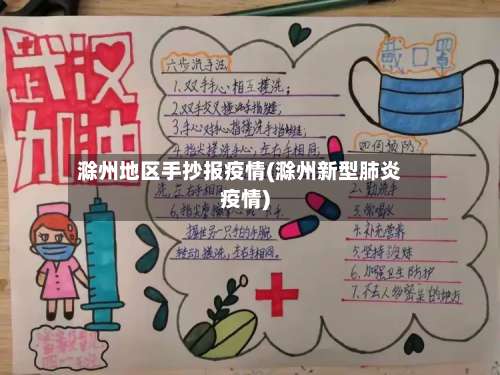 武汉
加油
六步洗手法
1.双手手心相互搓洗;
2.双手交叉搓洗手指缝;
3.手心对手心搓洗手指缝;
4.指尖搓洗手心,左右手相同;
洗,左右手相同
握住另一只手的手腕
转动搓洗,左右手相同。
戴口罩
如何预防
2.勤洗手
3.常喝水
4.补充营养
5.坚持
6.加强卫生防护
7.不去人多密集的地方
滁州地区手抄报疫情(滁州新型肺炎
疫情)